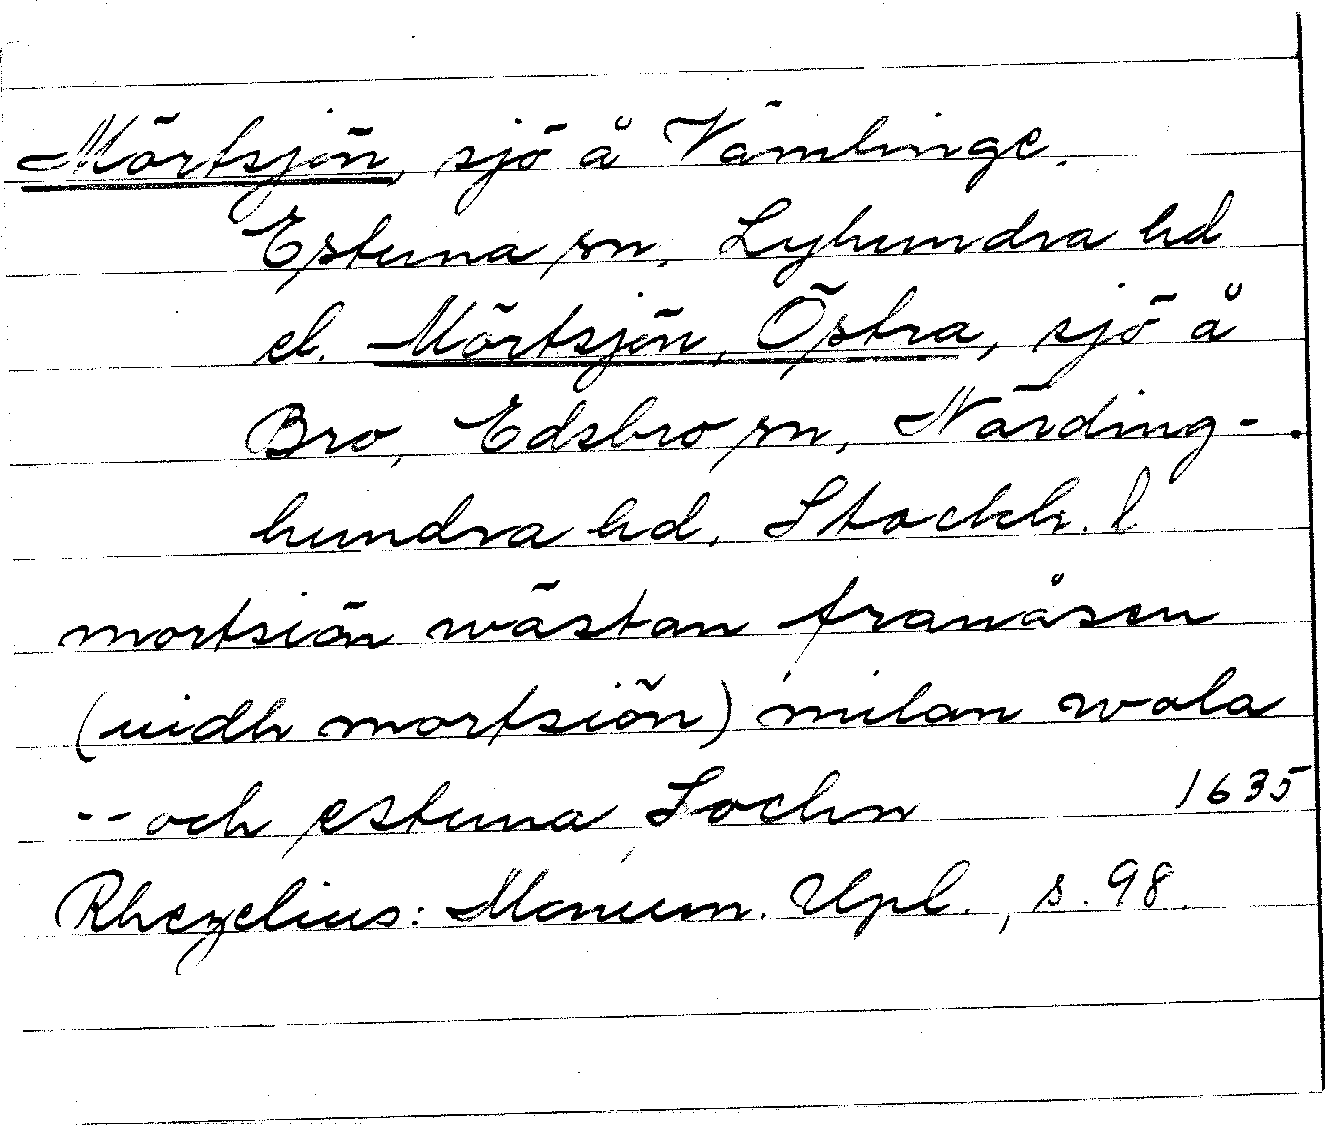 Mörtsjön, sjö å Vämlinge.
Estuna sn, Lyhundra hd
el. Mörtsjön, Östra, sjö å
Bro, Edsbro sn, Närding-
hundra hd, Stockh. l
mortsiön wästan franåsen
(uidh mortsiön) milan wola
-- och estuna Sochn 1635
Rhezelius: Monum. Upl., s. 98.